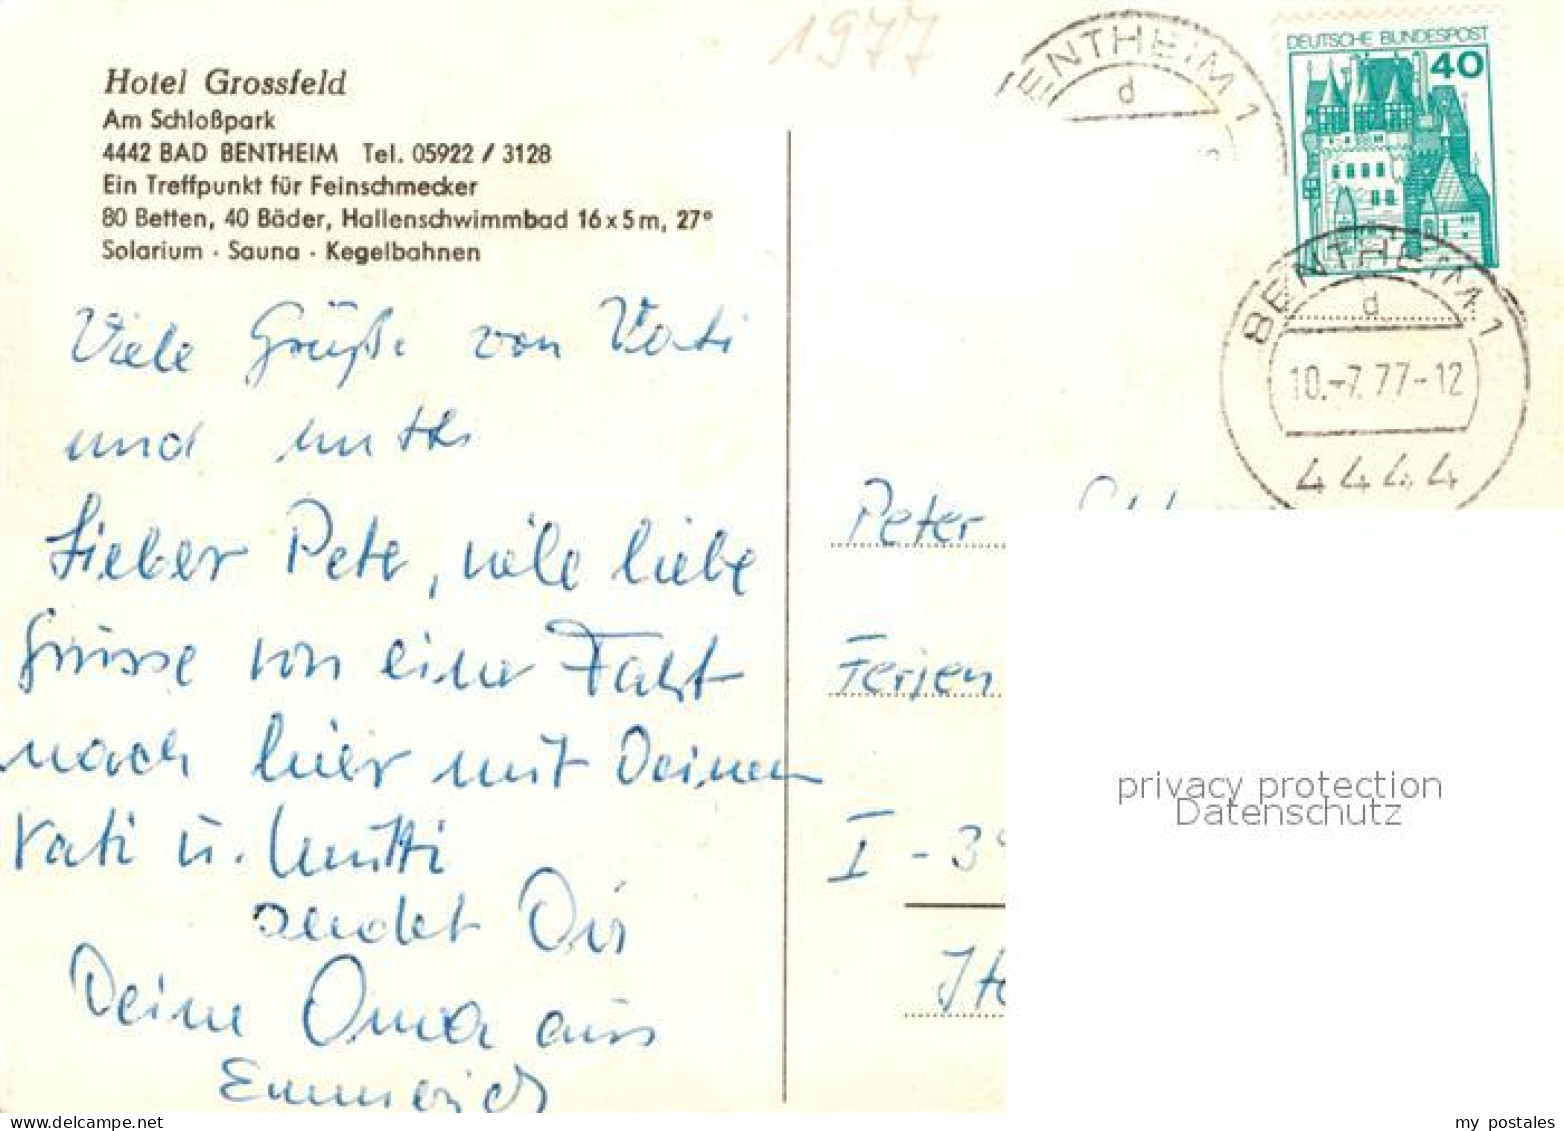 1977
Hotel Grossfeld
Am Schloßpark
4442 BAD BENTHEIM Tel. 05922 / 3128
Ein Treffpunkt für Feinschmecker
80 Betten, 40 Bäder, Hallenschwimmbad 16 x 5 m, 27°
Solarium · Sauna · Kegelbahnen
Viele Grüße von Vati
und Mutti
Lieber Peter, viele liebe
Grüsse von einer Fahrt
nach hier mit Deinen
Vati u. Mutti
sendet Dir
Deine Oma aus
Emmerich
ENTHEIM 1
d
DEUTSCHE BUNDESPOST
40
BENTHEIM 1
d
10.-7.77-12
4444
Peter
Ferien
I - 39
privacy protection
Datenschutz
www.delcampe.net
my_postales